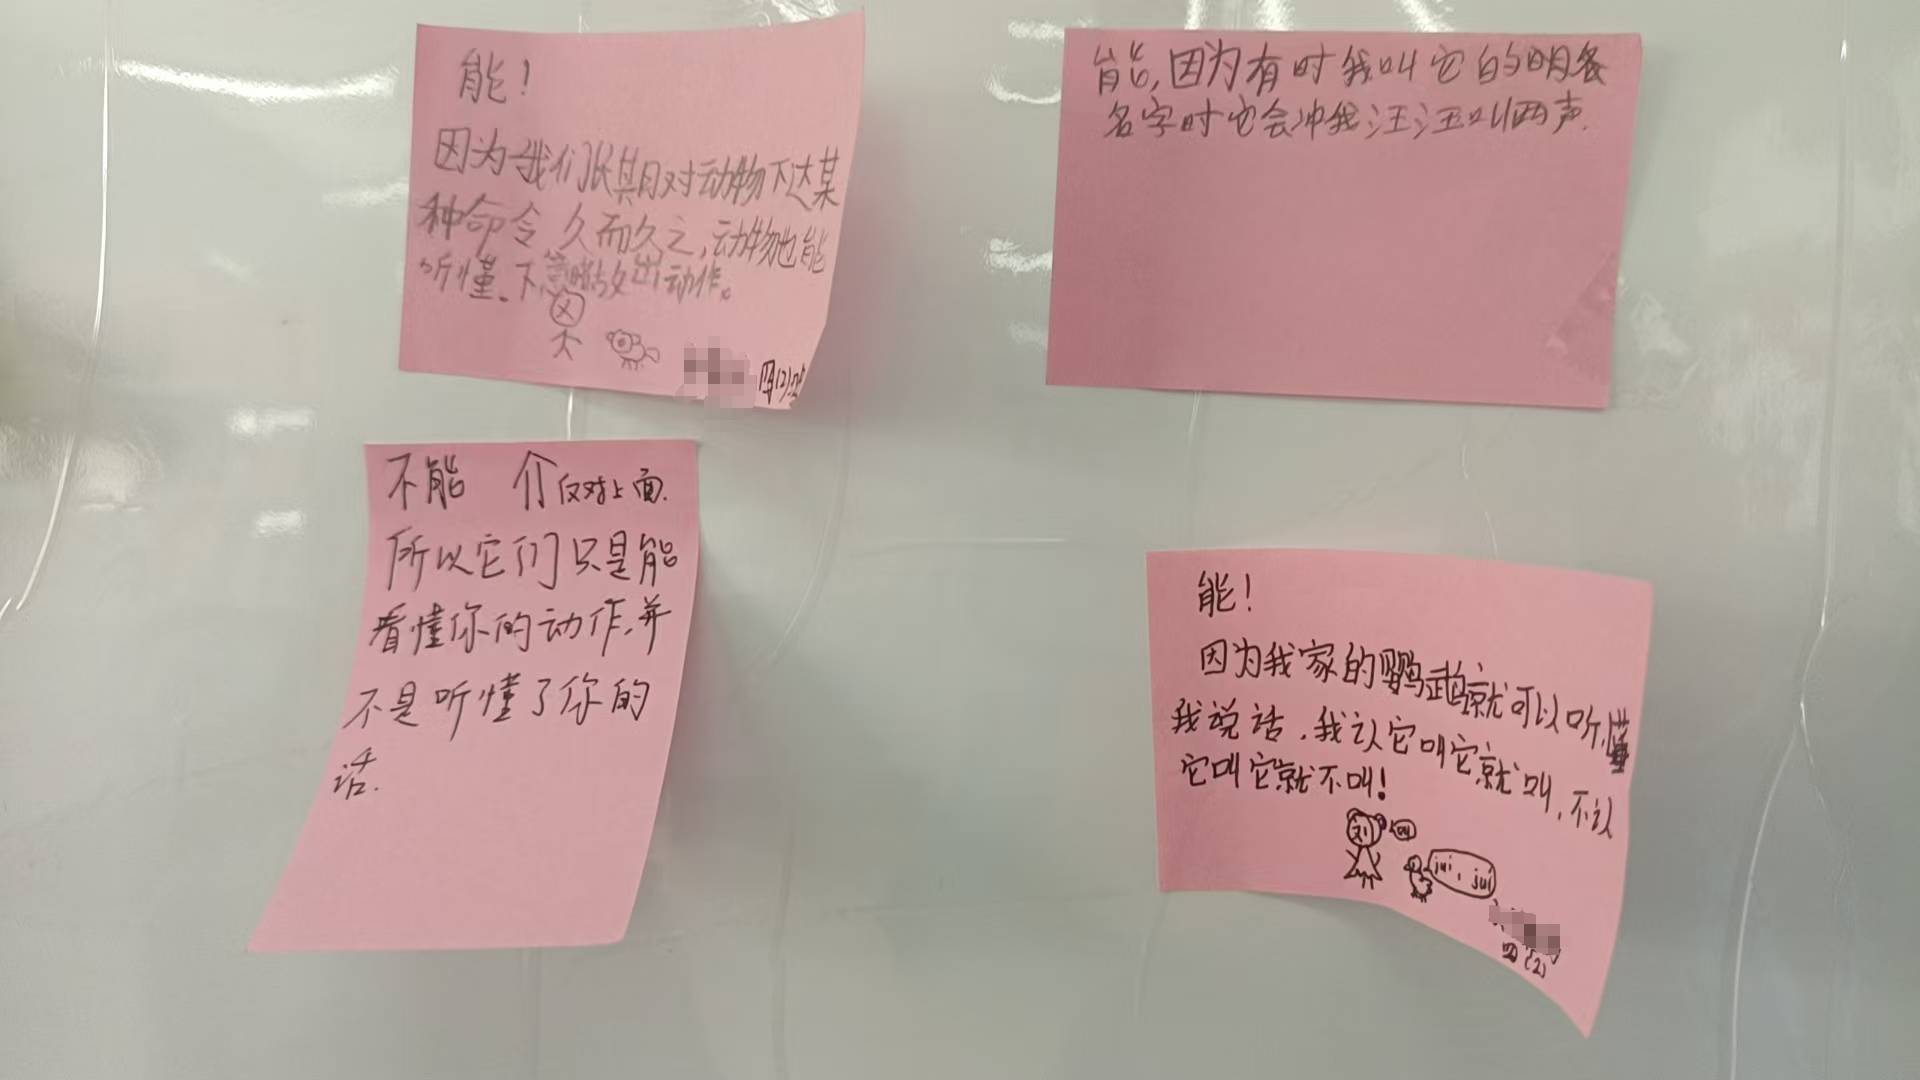 能！
因为我们长期对动物下达某
种命令,久而久之,动物也能
听懂。下意识做出动作。
四(2)
能,因为有时我叫它的明名
名字时它会冲我汪汪叫两声.
不能 个仅对上面.
所以它们只是能
看懂你的动作,并
不是听懂了你的
话.
能！
因为我家的鹦鹉就可以听懂
我说话,我认它叫它就叫,不认
它叫它就不叫！
叫
jui, jui
四(2)